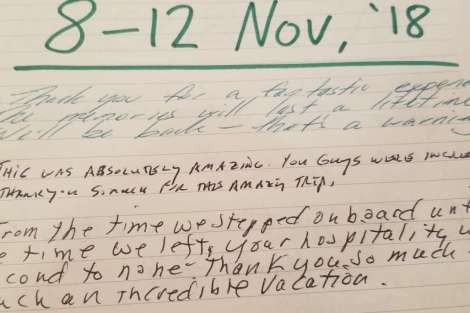 8-12 Nov, '18
Thank you for a fantastic experie
The memories will last a lifetime
We'll be back - that's a warning
THIS WAS ABSOLUTELY AMAZING. YOU GUYS WERE INCRED
THANK YOU SO MUCH FOR THIS AMAZING TRIP,
From the time we stepped onboard unt
e time we left, your hospitality w
cond to none - Thank you so much
uch an incredible vacation.